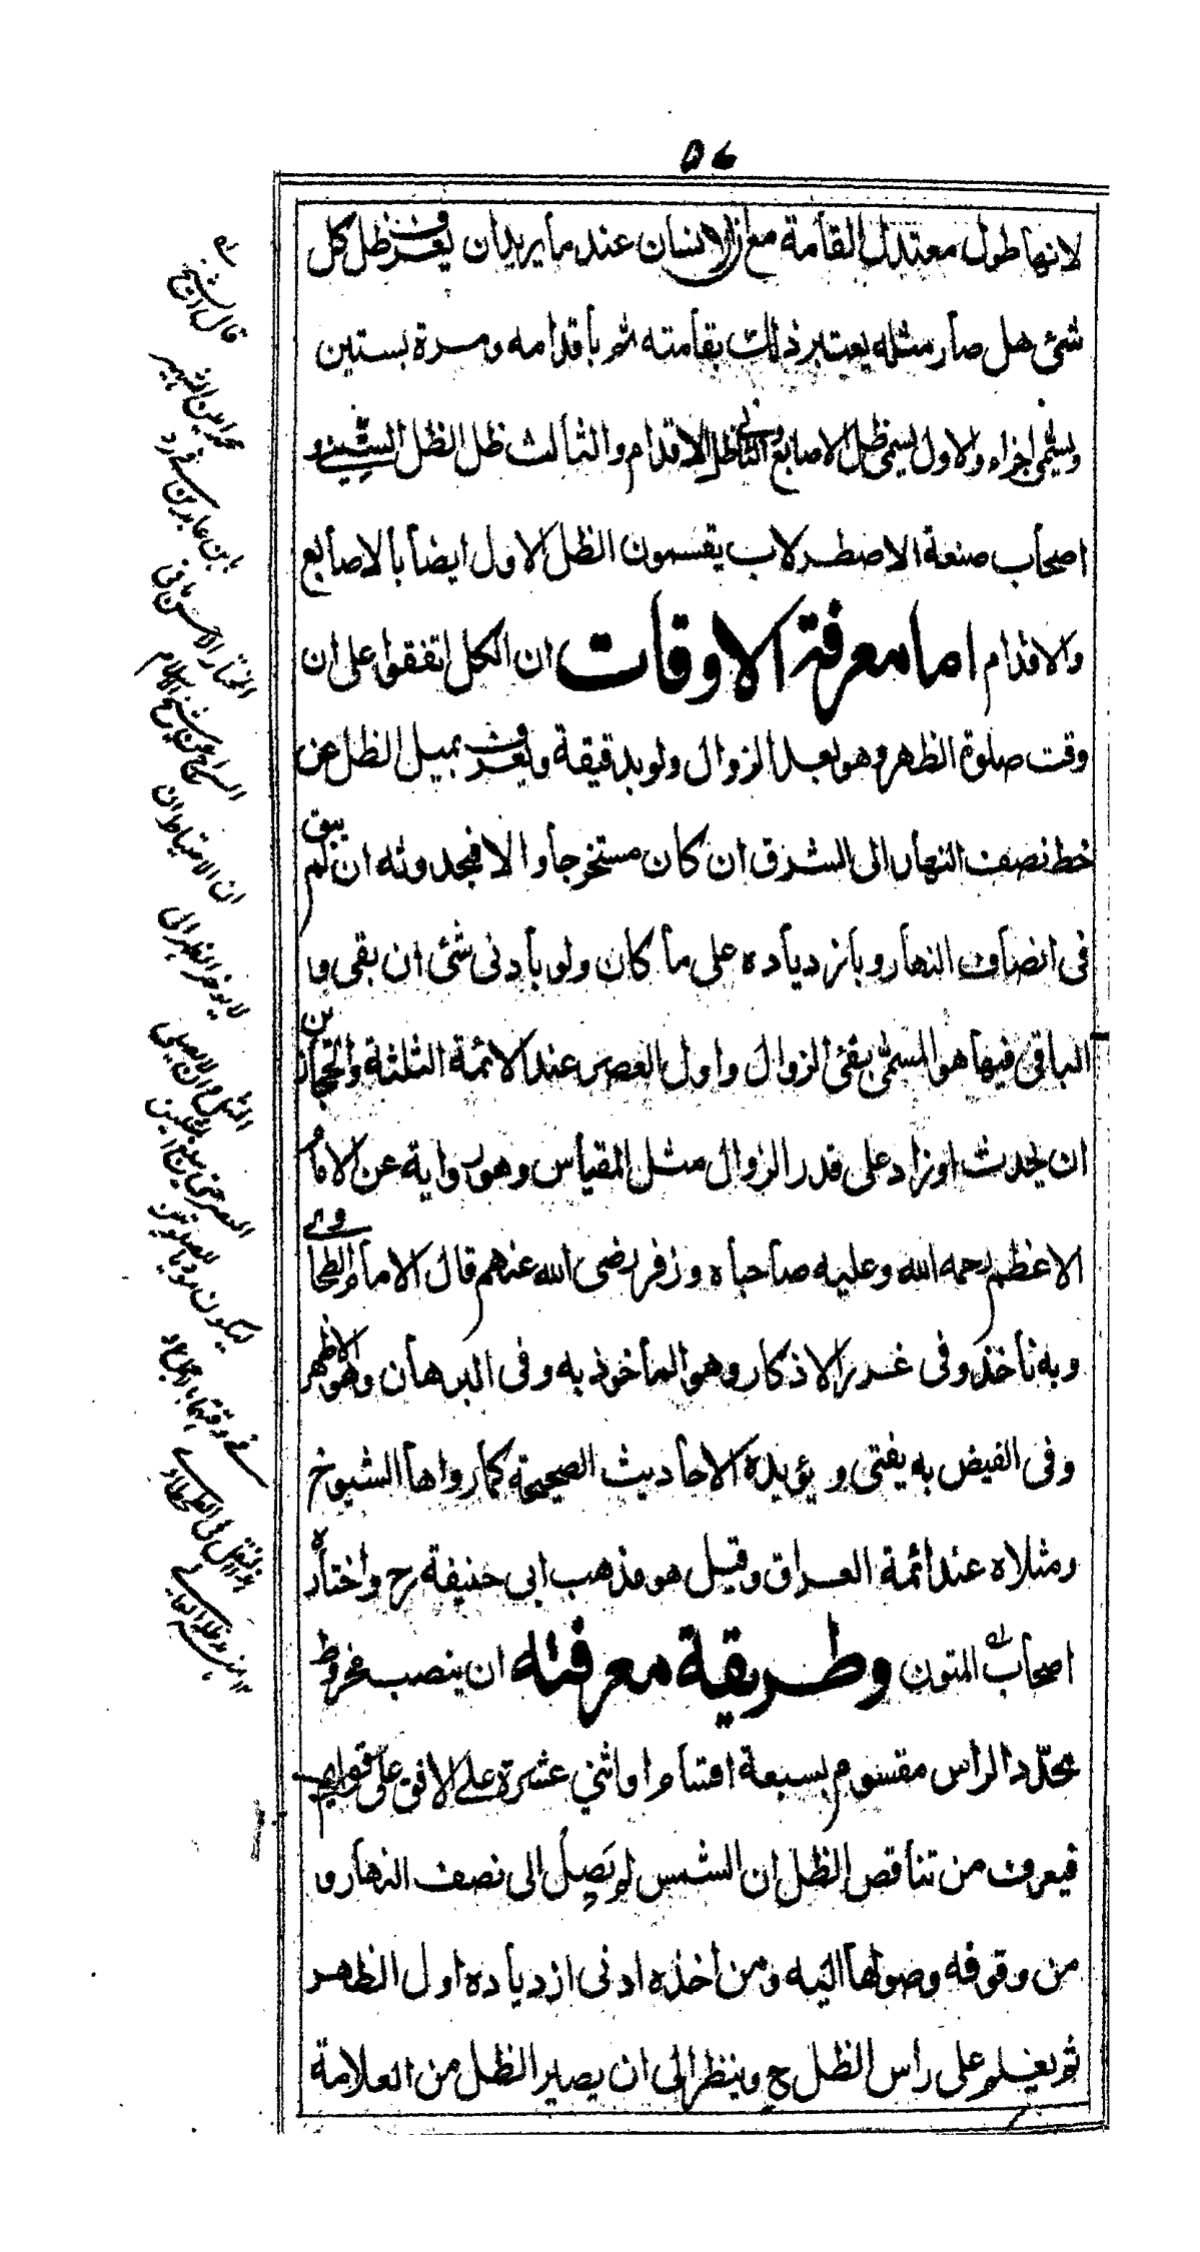 ٥٤
لانها طول معتدل القامة مع ان الانسان عند ما يريد ان يعرف ظل كل
شئ هل صار مثله يعتبر ذلك بقامته ثم باقدامه ومرة بستين
ويسمى اجزاء والاول يسمى ظل الاصابع والثانى ظل الاقدام والثالث ظل الظل الستينى و
اصحاب صنعة الاصطرلاب يقسمون الظل الاول ايضا بالاصابع
والاقدام اما معرفة الاوقات ان الكل اتفقوا على ان
وقت صلوة الظهر وهو بعد الزوال ولو بدقيقة ويعرف بميل الظل عن
خط نصف النهار الى الشرق ان كان مستخرجا والا فبحدوثه ان لم يبق
فى انصاف النهار وبازدياده على ما كان ولو بادنى شئ ان بقى و
الباقى فيها هو المسمى بفئ الزوال واول العصر عند الائمة الثلثة والحجازين
ان يحدث او زاد على قدر الزوال مثل المقياس وهو رواية عن الامام
الاعظم رحمه الله وعليه صاحباه وزفر رضى الله عنهم قال الامام الطحاوى
وبه ناخذ وفى غرر الاذكار وهو الماخوذ به وفى البرهان وهو الاظهر
وفى الفيض به يفتى ويؤيده الاحاديث الصحيحة كما رواها الشيوخ
ومثلاه عند ائمة العراق وقيل هو مذهب ابى حنيفة رح واختاره
اصحاب المتون وطريقة معرفته ان ينصب مخروط
محدد الراس مقسوم بسبعة اقسام او اثنى عشرة على الافق على قوايم
فيعرف من تناقص الظل ان الشمس لم يصل الى نصف النهار و
من وقوفه وصولها اليه ومن اخذه ادنى ازدياده اول الظهر
ثم يعلم على راس الظل ح وينظر الى ان يصير الظل من العلامة
قال الشيخ
محمد امين الشهير
بابن عابدين فى رد
المختار الاحسن ما فى
السراج عن شيخ الاسلام
ان الاحتياط ان
لا يؤخر الظهر الى
المثل وان لا يصلى
العصر حتى يبلغ المثلين
ليكون مؤديا للصلوتين
فى وقتيهما بالاجماع